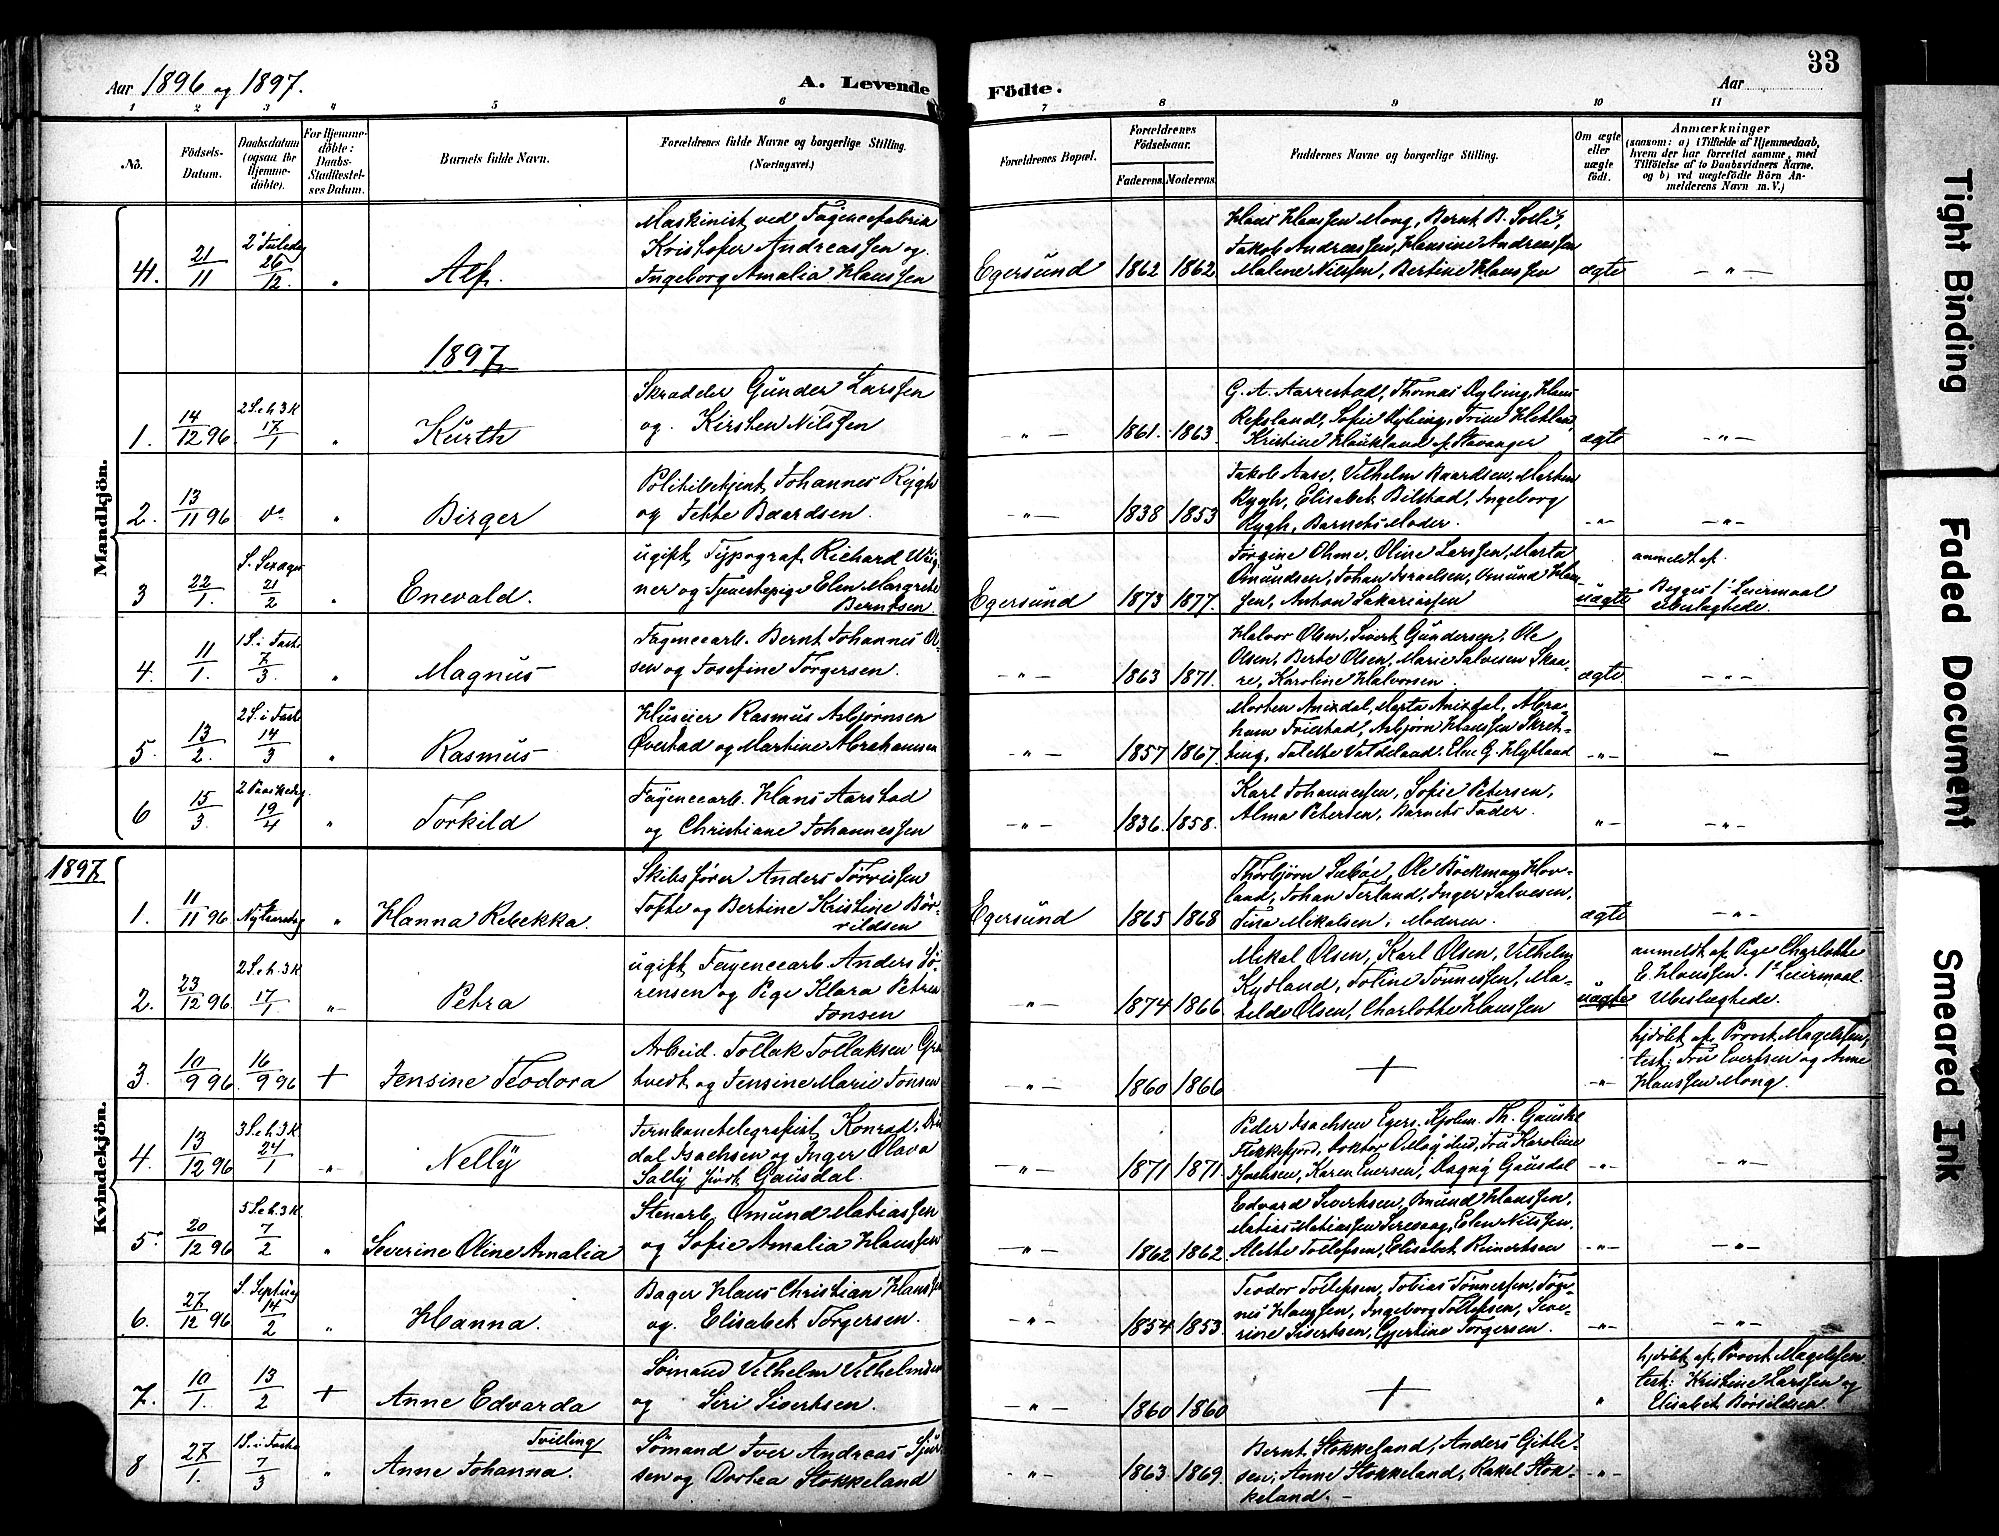 Aar 1896 og 1897.
A. Levende Födte.
Aar
33
1 2 3 " 5 6 7 8 9 10 11
No.
Födsels-Datum.
Daabsdatum (ogsaa for Hjemme-döbte).
For Hjemme-döbte: Daabs-Stadfæstel-ses Datum.
Barnets fulde Navn.
Forældrenes fulde Navne og borgerlige Stilling. (Næringsvei.)
Forældrenes Bopæl.
Forældrenes Födselsaar.
Faderens. Moderens.
Faddernes Navne og borgerlige Stilling.
Om ægte eller uægte födt.
Anmærkninger
(saasom: a) i Tilfælde af Hjemmedaab, hvem der har forrettet samme, med Tilföielse af to Daabsvidners Navne, og b) ved uægtefödte Börn An-melderens Navn m. V.)
Mandkjön.
41. 21/11 2' Juledag 26/12. " Alf.
Maskinist ved Fayencefabrik
Kristofer Andreassen og
Ingeborg Amalia Hanssen
Egersund 1862 1862
Hans Hanssen Mong, Bernt B. Solli,
Jakob Andreassen, Hansine Andreassen
Malene Nilssen, Bertine Hanssen
ægte — " —
1897
1. 14/12 96. 2 S. e. h. 3 K 17/1 " Kurth
Skrædder Gunder Larssen
og Kirsten Nilssen
— " — 1861. 1863.
G. A. Aarrestad, Thomas Nyling, Hans
Repsland, Sofie Nyling, Trine Hetland,
Kristine Haukland af Stavanger
ægte — " —
2. 13/11 96 do " Birger
Politibetjent Johannes Rygh
og Jette Baardsen.
— " — 1838 1853
Jakob Aase, Vilhelm Baardsen, Morten
Rygh, Elisabet Bilstad, Ingeborg
Rygh, Barnets Moder.
— " — — " —
3 22/1. S. Sexages 21/2 " Enevald.
ugift Typograf Richard Weg-
ner og Tjenestepige Elen Margrete
Berntsen
Egersund 1873 1877.
Jørgine Ohme, Oline Larssen, Marta
Omundsen, Johan Israelsen, Omund Han-
sen, Anton Sakariassen
uægte
anmeldt af
Begges 1' Leiermaal
Ubeslægtede.
4. 11/1. 1 S. i Faste 7/3. " Magnus
Fayencearb. Bernt Johannes Ol-
sen og Josefine Torgersen.
— " — 1863 1871.
Halvor Olsen, Sivert Gundersen, Ole
Olsen, Berte Olsen, Marie Salvesen Skaa-
re, Karoline Halvorsen.
ægte. — " —
5. 13/2. 2 S. i Faste 14/3 " Rasmus
Huseier Rasmus Asbjørnsen
Øvestad og Martine Abrahamsen
— " — 1857 1867.
Morten Anisdal, Marta Anisdal, Abra-
ham Friestad, Asbjørn Hanssen Skret-
ting, Talette Vatdeland, Elen G. Hytland
— " — —
6 15/3. 2 Paaskedag 19/4 " Torkild
Fayencearb. Hans Aarstad
og Christiane Johannessen
— " — 1836. 1858.
Karl Johannessen, Sofie Petersen,
Alma Petersen, Barnets Fader.
" — " —
1897.
Kvindekjön.
1. 11/11 96 Nytaarsdag " Hanna Rebekka.
Skibsfører Anders Tørrissen
Tofte og Bertine Kristine Bør-
vildsen
Egersund 1865 1868
Thorbjørn Sæbøe, Ole Böckman Hov-
land, Johan Terland, Inger Salvesen,
Tina Mikalsen, Moderen.
ægte — " —
2. 23/12 96. 2 S. e. h. 3 K 17/1 " Petra
ugift Fayencearb. Anders Sø-
rensen og Pige Klara Petrea
Tonsen
— " — 1874 1866
Mikal Olsen, Karl Olsen, Vilhelm
Kydland, Toline Tønnessen, Ma-
thilde Olsen, Charlotte Hanssen
uægte
anmeldt af Pige Charlotte
E. Hanssen. 1' Leiermaal.
Ubeslægtede.
3. 10/9 96. 16/9 96 + Jensine Teodora
Arbeid. Tollak Tollaksen Gra-
tvedt og Jensine Marie Jonsen
— " — 1860 1866
+
"
hjdöbt af Provst Magelssen,
test: Fru Evertsen og Anne
Hanssen Mong.
4. 13/12 96 3 S. e. h. 3 K 24/1 " Nelly
Jernbanetelegrafist Konrad
dal Isachsen og Inger Olava
Sally født Gausdal.
— " — 1871 1871.
Peder Isachsen Egers., Gausdal
Flekkefjord, Doktor Fru Karoline
Isachsen, Karen Eversen, Dagny Gausdal
— " — — " —
5. 20/12 96 5 S. e. h. 3 K. 7/2 " Severine Oline Amalia
Stenarb. Omund Matiassen
og Sofie Amalia Hanssen
— " — 1862 1862.
Edvard Sivertsen, Omund Hanssen,
Matias Matiassen Seresaag, Elen Nilssen,
Alette Tollefsen, Elisabet Reinertsen
— " — — " —
6. 27/12 96 S. Septuag 14/2 " Hanna.
Bager Hans Christian Hanssen
og. Elisabet Torgersen.
— " — 1854 1853.
Teodor Tollefsen, Tobias Tønnessen, Tøn-
nes Hanssen, Ingeborg Tollefsen, Seve-
rine Sivertsen, Gjertine Torgersen.
— " — — " —
7. 10/1. 13/2 + Anne Edvarda
Sømand Vilhelm Vilhelmsen
og Siri Sivertsen.
— " — 1860 1860
+
"
hjdöbt af Provst Magelssen.
test: Kristine Larssen og
Elisabet Børsildsen.
8 27/1. 1 S. i Faste 7/3 " Tvilling
Anne Johanna.
Sømand Iver Andreas Sjur-
sen og Dorthea Stokkeland
— " — 1863. 1869.
Bernt Stokkeland, Anders Gitle-
sen, Anne Stokkeland, Rakel Stok-
keland. —
— " —
Tight Binding
Faded Document
Smeared Ink